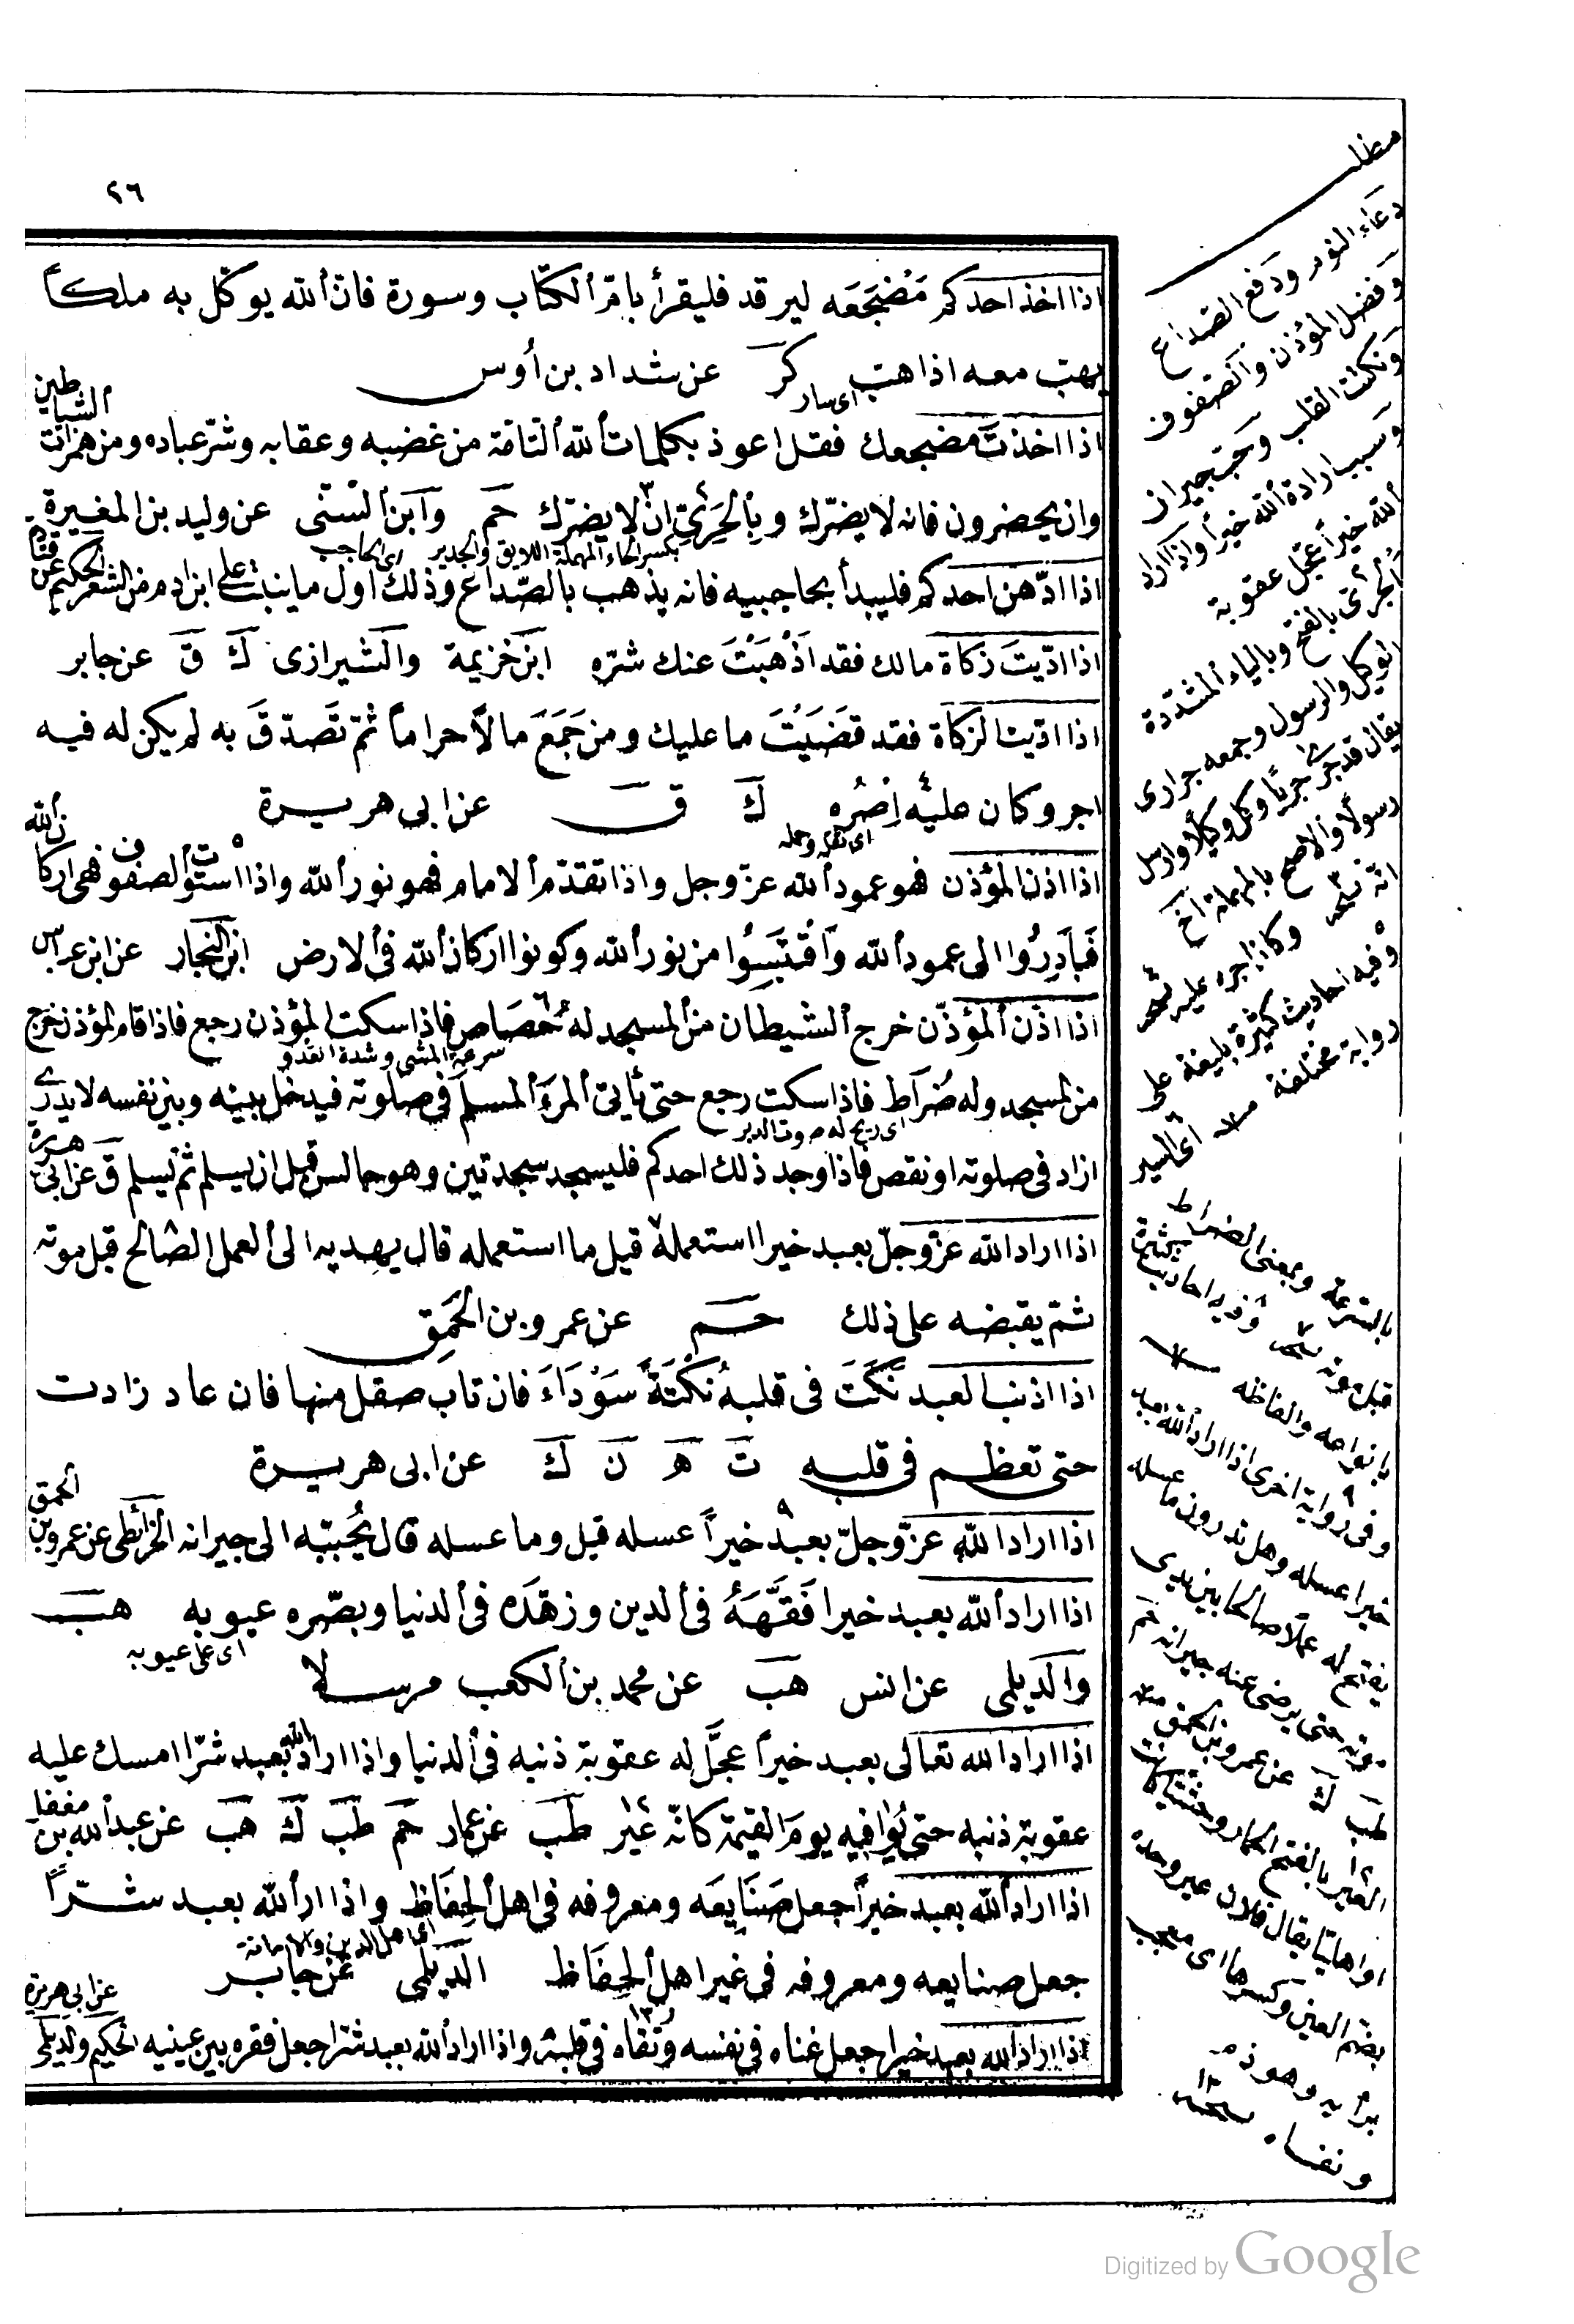 ٢٦
اذا اخذ احدكم مَضْجَعَه ليرقد فليقرأ بامّ الكتاب وسورة فانّ الله يوكّل به ملكاً
يهبّ معه اذا هبّ كر عن شداد بن أوس
اى سار
اذا اخذتَ مضجعك فقل اعوذ بكلمات الله التامّة من غضبه وعقابه وشرّ عباده ومن همزات الشياطين
وان يحضرون فانه لا يضرّك وبِالْحَرِيّ ان لا يضرّك حم وابن السنى عن وليد بن المغيرة
بكسر الحاء المهملة اللايق والجدير اى الحاجب
اذا ادّهن احدكم فليبدأ بحاجبيه فانه يذهب بالصّداع وذلك اول ما ينبت على ابن ادم من الشعر الحكيم عن قتادة
اذا ادّيتَ زكاة مالك فقد اَذْهَبْتَ عنك شرّه ابن خزيمة والشيرازى ك ق عن جابر
اذا ادّيت الزكاة فقد قضَيْتَ ما عليك ومن جَمَعَ مالاً حراماً ثمّ تَصدّقَ به لم يكن له فيه
اجر وكان عليه اِصْرُه ك ق عن ابى هريرة
اى ثقله وحمله
اذا اذن المؤذن فهو عمود الله عزّ وجل واذا تقدّم الامام فهو نور الله واذا استوت الصفوف فهى اركان الله
فَبَادِرُوا الى عمود الله وَاقْتَبِسُوا من نور الله وكونوا اركان الله فى الارض ابن النجار عن ابن عباس
اذا اذّن المؤذّن خرج الشيطان من المسجد له حُصَاص فاذا سكت المؤذن رجع فاذا قام المؤذن خرج
سرعة المشى وشدة العدو
من المسجد وله ضُراط فاذا سكت رجع حتى يأتى المرءَ المسلمَ فى صلوته فيدخل بينه وبين نفسه لا يدرى
اى ريح له صوت الدبر
ازاد فى صلوته او نقص فاذا وجد ذلك احدكم فليسجد سجدتين وهو جالس قبل ان يسلم ثم يسلم ق عن ابى هريرة
اذا اراد الله عزّ وجلّ بعبد خيرا استعمله قيل ما استعمله قال يهديه الى العمل الصّالح قبل موته
ثمّ يقبضه على ذلك حم عن عمرو بن الحَمِق
اذا اذنب العبد نُكِتَ فى قلبه نُكْتَةٌ سَوْدَاءَ فان تاب صقل منها فان عاد زادت
حتى تعظم فى قلبه ت هـ ن ك عن ابى هريرة
اذا اراد الله عزّ وجلّ بعبد خيراً عسله قيل وما عسله قال يُحَبّبه الى جيرانه الخرائطى عن عمرو بن الحمق
اذا اراد الله بعبد خيرا فَقَّهَهُ فى الدين وزهّدَه فى الدنيا وبصّره عيوبه هب
اى على عيوبه
والديلمى عن انس هب عن محمد بن الكعب مرسلا
اذا اراد الله تعالى بعبد خيراً عجّل له عقوبة ذنبه فى الدنيا واذا اراد الله بعبد شرّا امسك عليه
عقوبة ذنبه حتى يُوافيه يوم القيمة كانّه عَيْر طب عن عمار حم طب ك هب عن عبد الله بن مغفل
اذا اراد الله بعبد خيراً جعل صَنَايِعَه ومعروفه فى اهل الحِفَاظِ واذا اراد الله بعبد شرّاً
اى اهل الدين والامانة
جعل صنايعه ومعروفه فى غير اهل الحِفَاظ الديلمى عن جابر
اذا اراد الله بعبد خيرا جعل غناه فى نفسه وتقاه فى قلبه واذا اراد الله بعبد شرّا جعل فقره بين عينيه الحكيم والديلمى عن ابى هريرة
مطلب
دعاء النوم ودفع الصداع
وفضل المؤذن والصفوف
ونكت القلب وحب جيران
وسبب ارادة الله خيراً واذا اراد
الله خيراً عجّل عقوبة
الجرىّ بالفتح وبالياء المشددة
الوكيل والرسول وجمعه
يقال قد جرى جريّا وكل وكيلا وارسل
رسولا والاصح بالمهملة
وكان اجره عليه
وفيه احاديث كثيرة بليغة على
رواية مختلفة
اى السير
بالسرعة وبمعنى الضراط
قبل موته وفيه احاديث
بانواعه والفاظه
وفى رواية اخرى اذا اراد الله بعبد
خيرا عسله وهل تدرون ما عسله
يفتح له عملا صالحا بين يدى
موته حتى يرضى عنه جيرانه حم
طب ك عن عمرو بن الحمق
العير بالفتح الحمار وحشيا كانت
او اهليّا يقال فلان عير وحده
بضم العين وكسرها اى معجب
برأيه وهو ذم
Digitized by Google